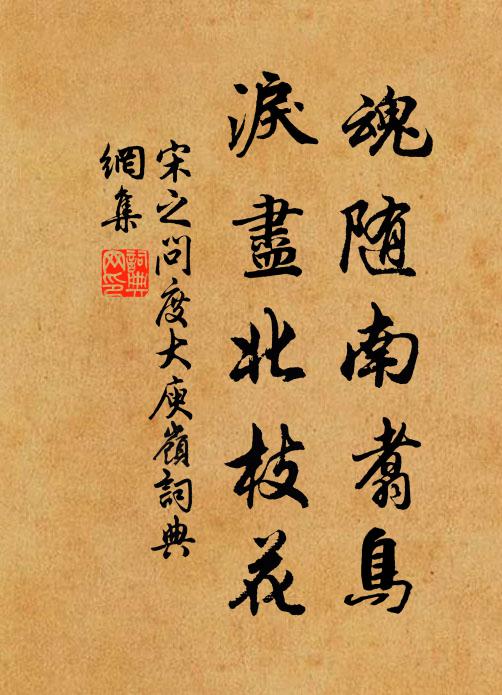 魂随南翥鳥
淚盡北枝花
宋之问度大庾嶺詞典
網集
詞典網印